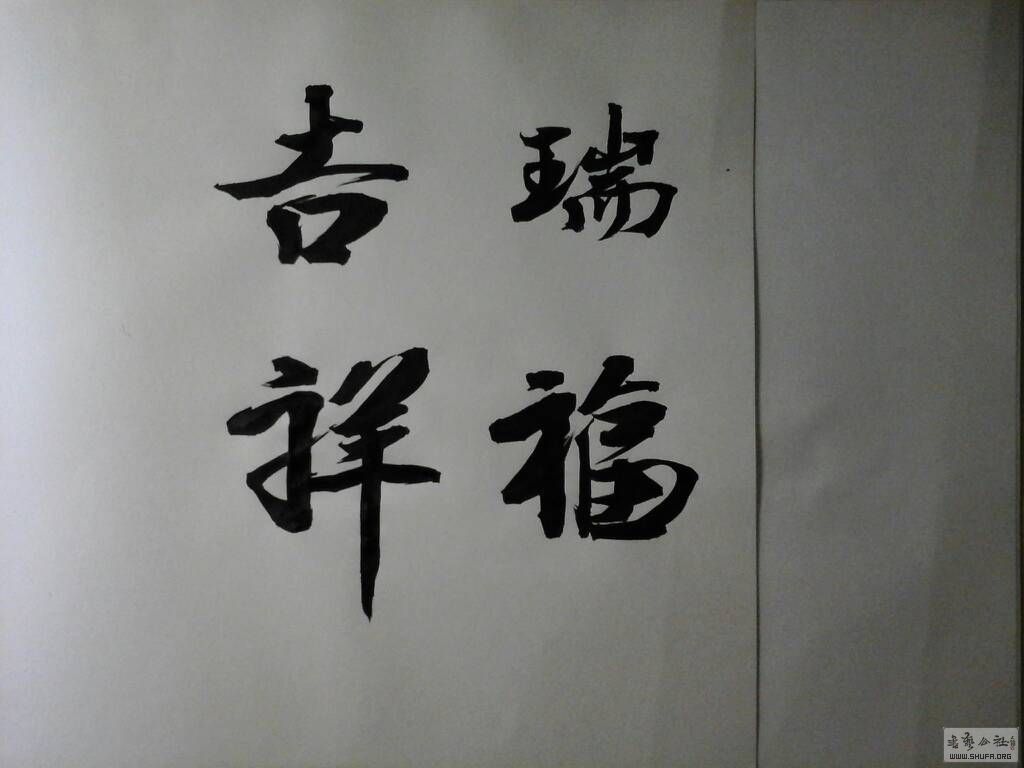 瑞福
吉祥
书艺公社
WWW.SHUFA.ORG